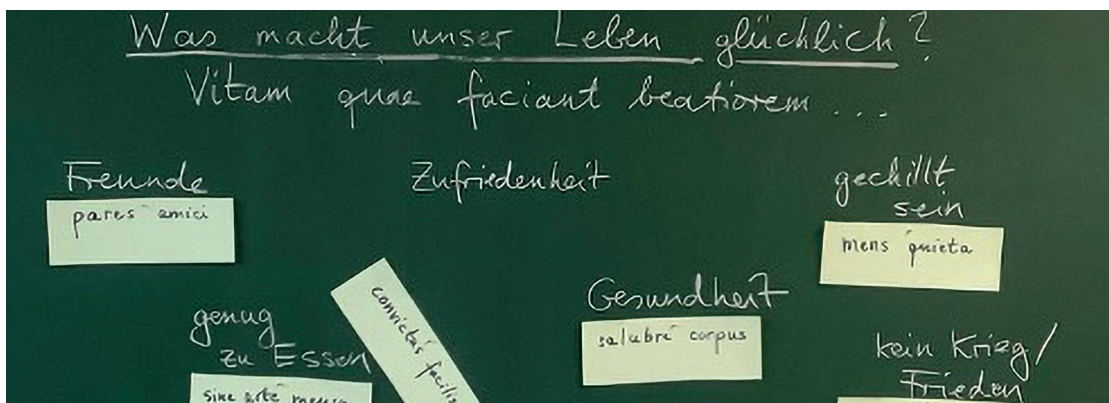 Was macht unser Leben glücklich?
Vitam quae faciant beatiorem ...
Freunde
pares amici
Zufriedenheit
gechillt
sein
mens quieta
genug
zu Essen
sine arte mensa
convictus facilis
Gesundheit
salubre corpus
kein Krieg/
Frieden